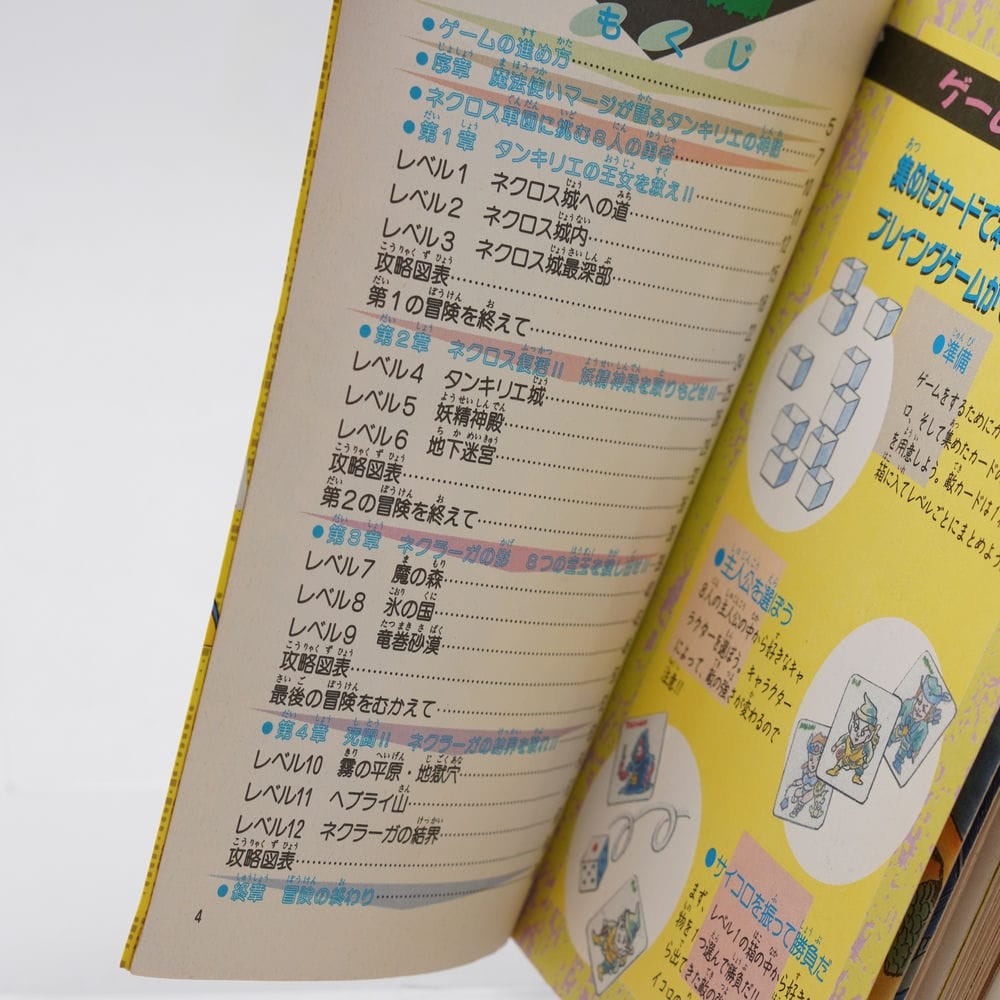 もくじ
●ゲームの進め方……5
●序章 魔法使いマージが語るタンキリエの神話……7
●ネクロス軍団に挑む8人の勇者……10
●第1章 タンキリエの王女を救え!!……11
レベル1 ネクロス城への道……12
レベル2 ネクロス城内……15
レベル3 ネクロス城最深部……
攻略図表……
第1の冒険を終えて……24
●第2章 ネクロス復活!! 妖精神殿を取りもどせ!!……25
レベル4 タンキリエ城……
レベル5 妖精神殿……
レベル6 地下迷宮……
攻略図表……
第2の冒険を終えて……
●第3章 ネクラーガの影 8つの宝玉を探し出せ!!
レベル7 魔の森……
レベル8 氷の国……
レベル9 竜巻砂漠……
攻略図表……
最後の冒険をむかえて……
●第4章 死闘!! ネクラーガの結界を破れ!!
レベル10 霧の平原・地獄穴……
レベル11 ヘブライ山……
レベル12 ネクラーガの結界……
攻略図表……
●終章 冒険の終わり……
4
ゲー
集めたカードで
プレイングゲームが
●準備
ゲームをするためにカ
ロ そして集めたカードの
を用意しよう。敵カードは
箱に入れてレベルごとにまとめよ
●主人公を選ぼう
8人の主人公の中から好きなキャ
ラクターを選ぼう。キャラクター
によって、敵の強さが変わるので
注意!!
●サイコロを振って勝負だ
まず、レベル1の箱の中から好き
物を1つ選んで勝負だ!!
ら出てきた敵の
イコロの